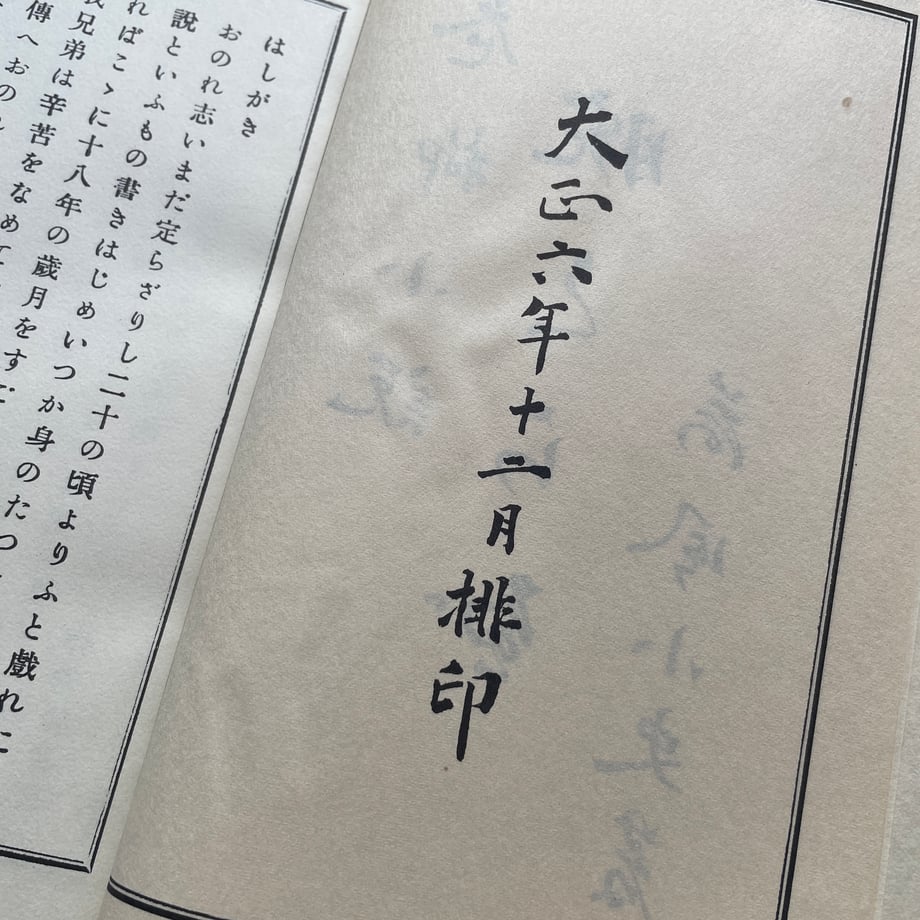 大正六年十二月排印
はしがき
おのれ志いまだ定らざりし二十の頃よりふと戯れに
説といふもの書きはじめいつか身のたつ
ればこゝに十八年の歳月をすご
兄弟は辛苦をなめて
傳へおのれ